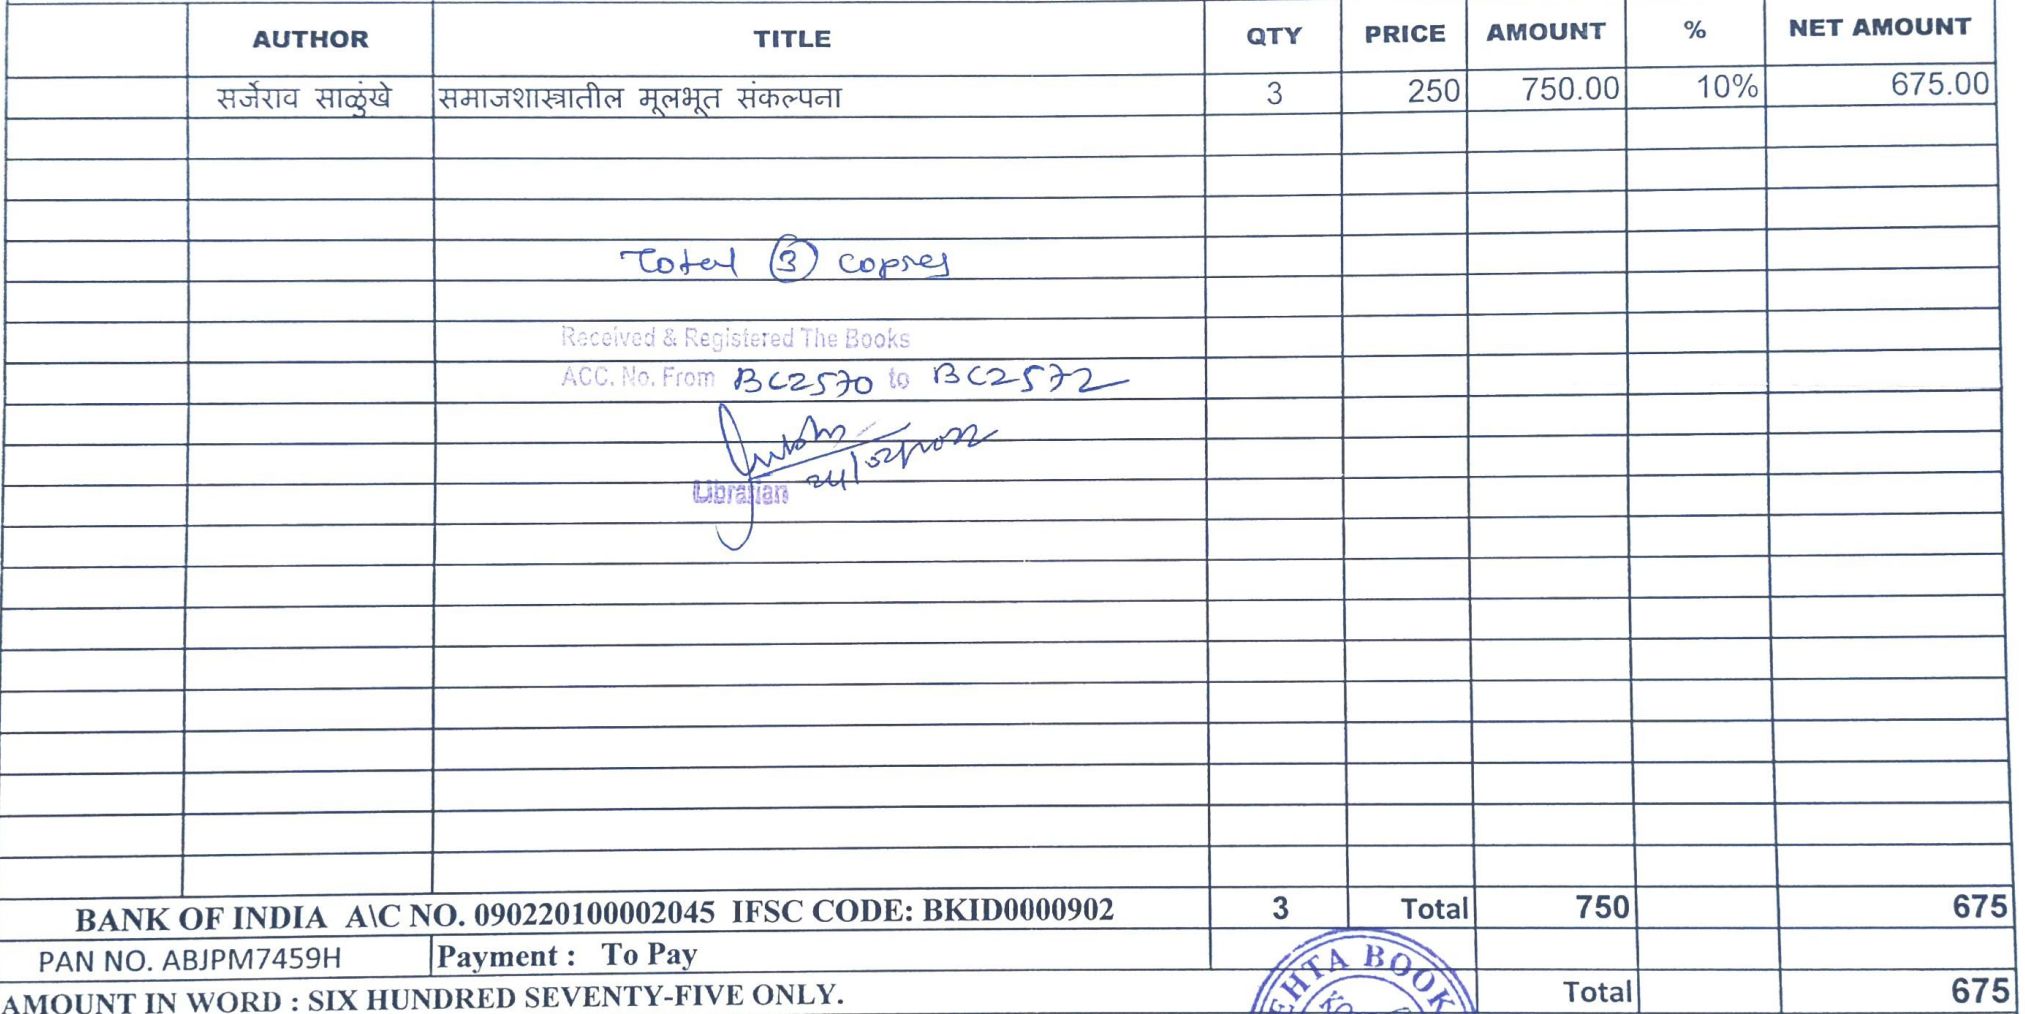 AUTHOR TITLE QTY PRICE AMOUNT % NET AMOUNT
सर्जेराव साळुंखे समाजशास्त्रातील मूलभूत संकल्पना 3 250 750.00 10% 675.00
Total 3 copies
Received & Registered The Books
ACC. No. From BC2570 to BC2572
Librarian
BANK OF INDIA A\C NO. 090220100002045 IFSC CODE: BKID0000902 3 Total 750 675
PAN NO. ABJPM7459H Payment : To Pay
AMOUNT IN WORD : SIX HUNDRED SEVENTY-FIVE ONLY. Total 675
EHTA BOOK